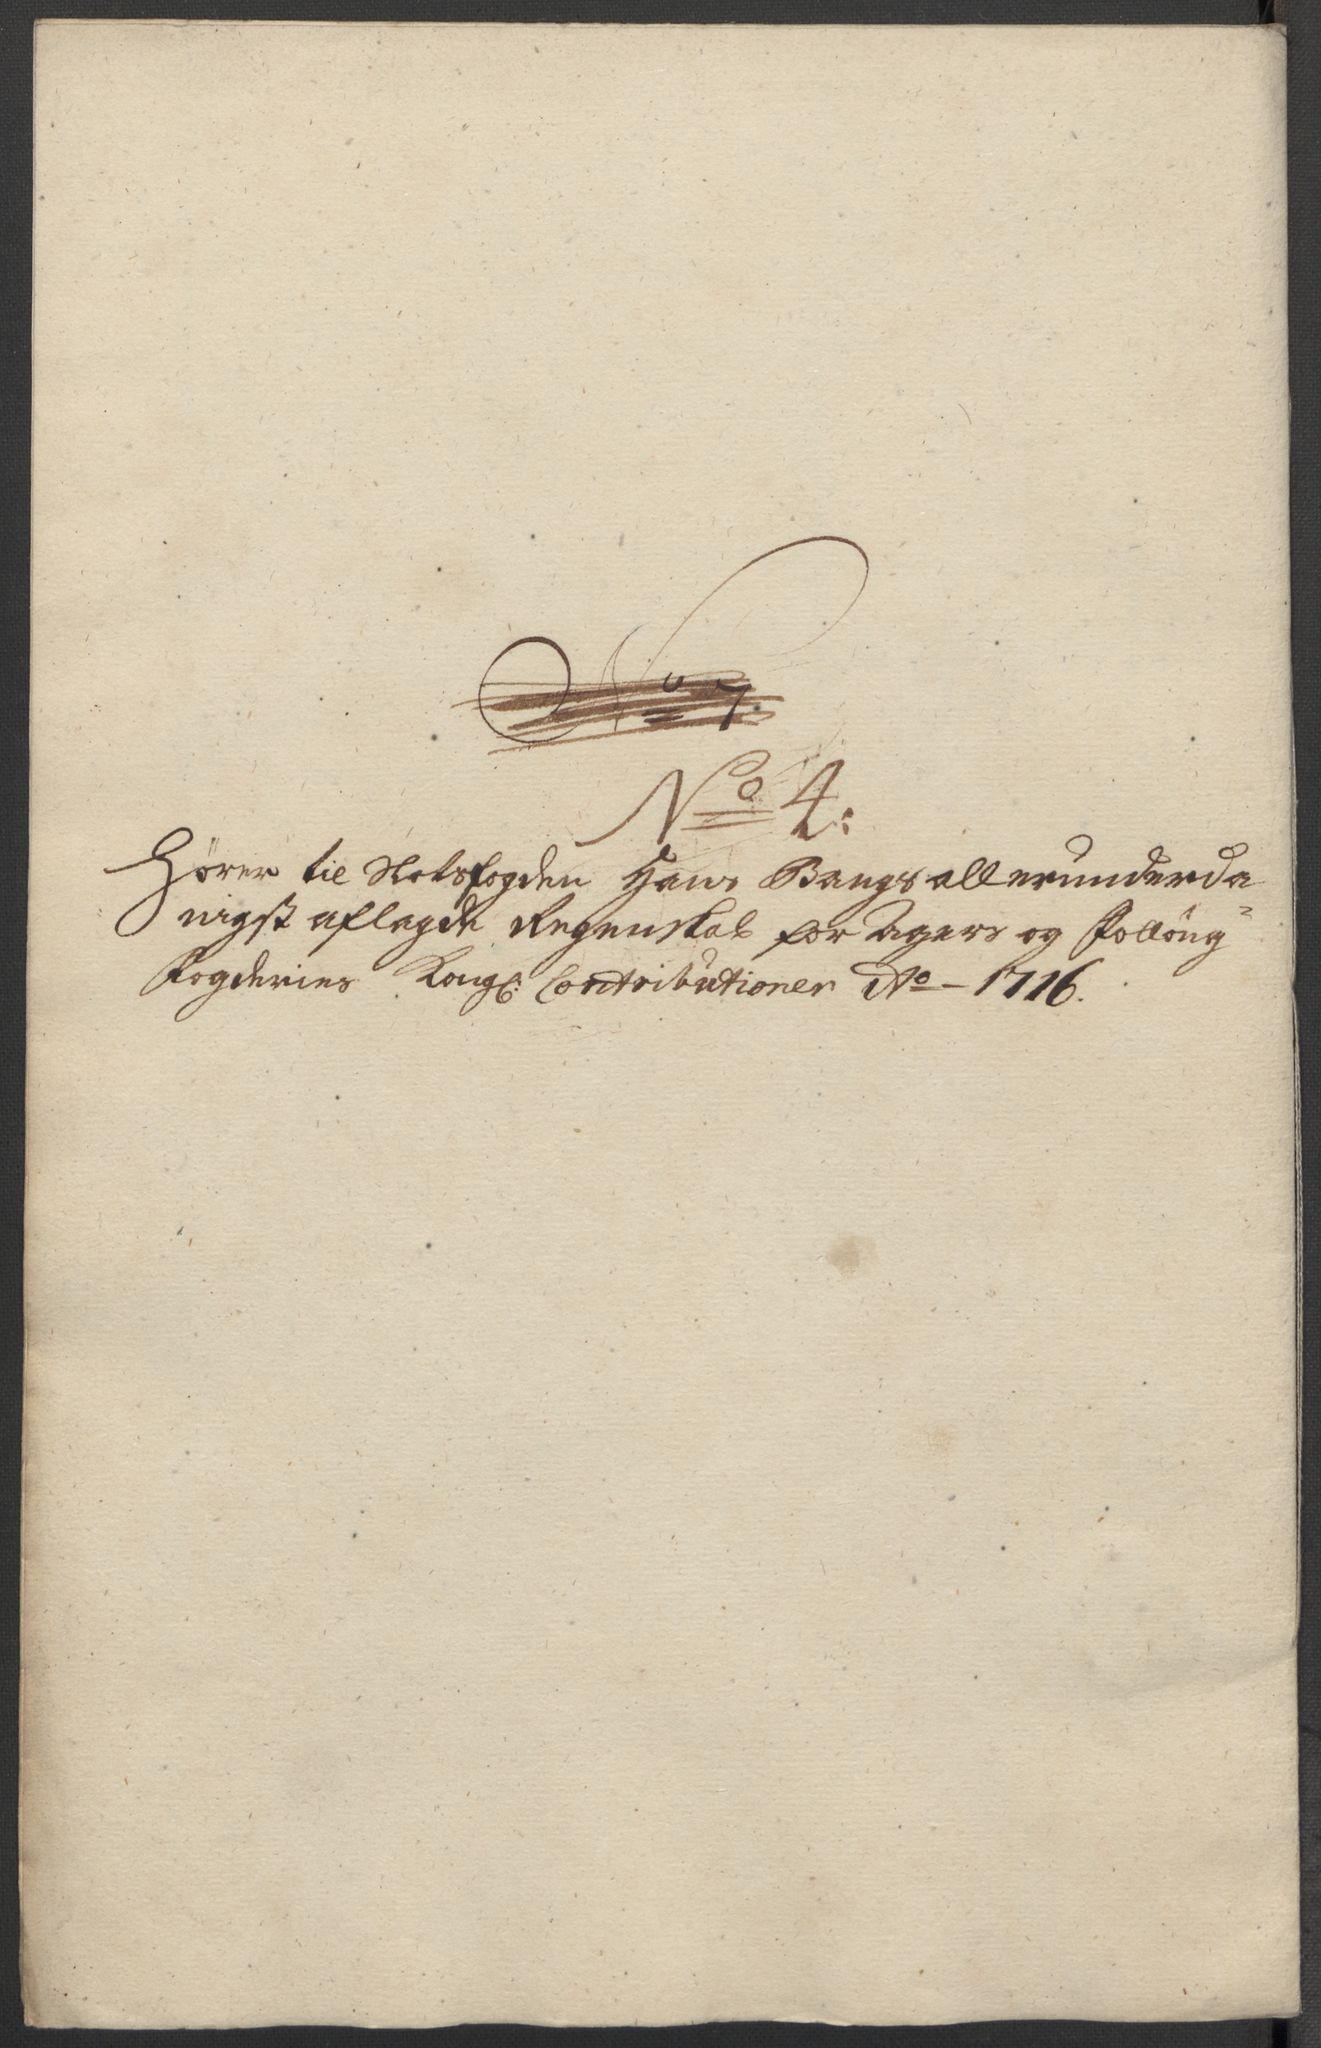 No 7.
No 4:
Hører til Slotsfogden Hans Bangs allerunderda
nigst aflagde Regenskab for Agers og Follóug
Fogderies Kongl: Contributioner Ao - 1716.